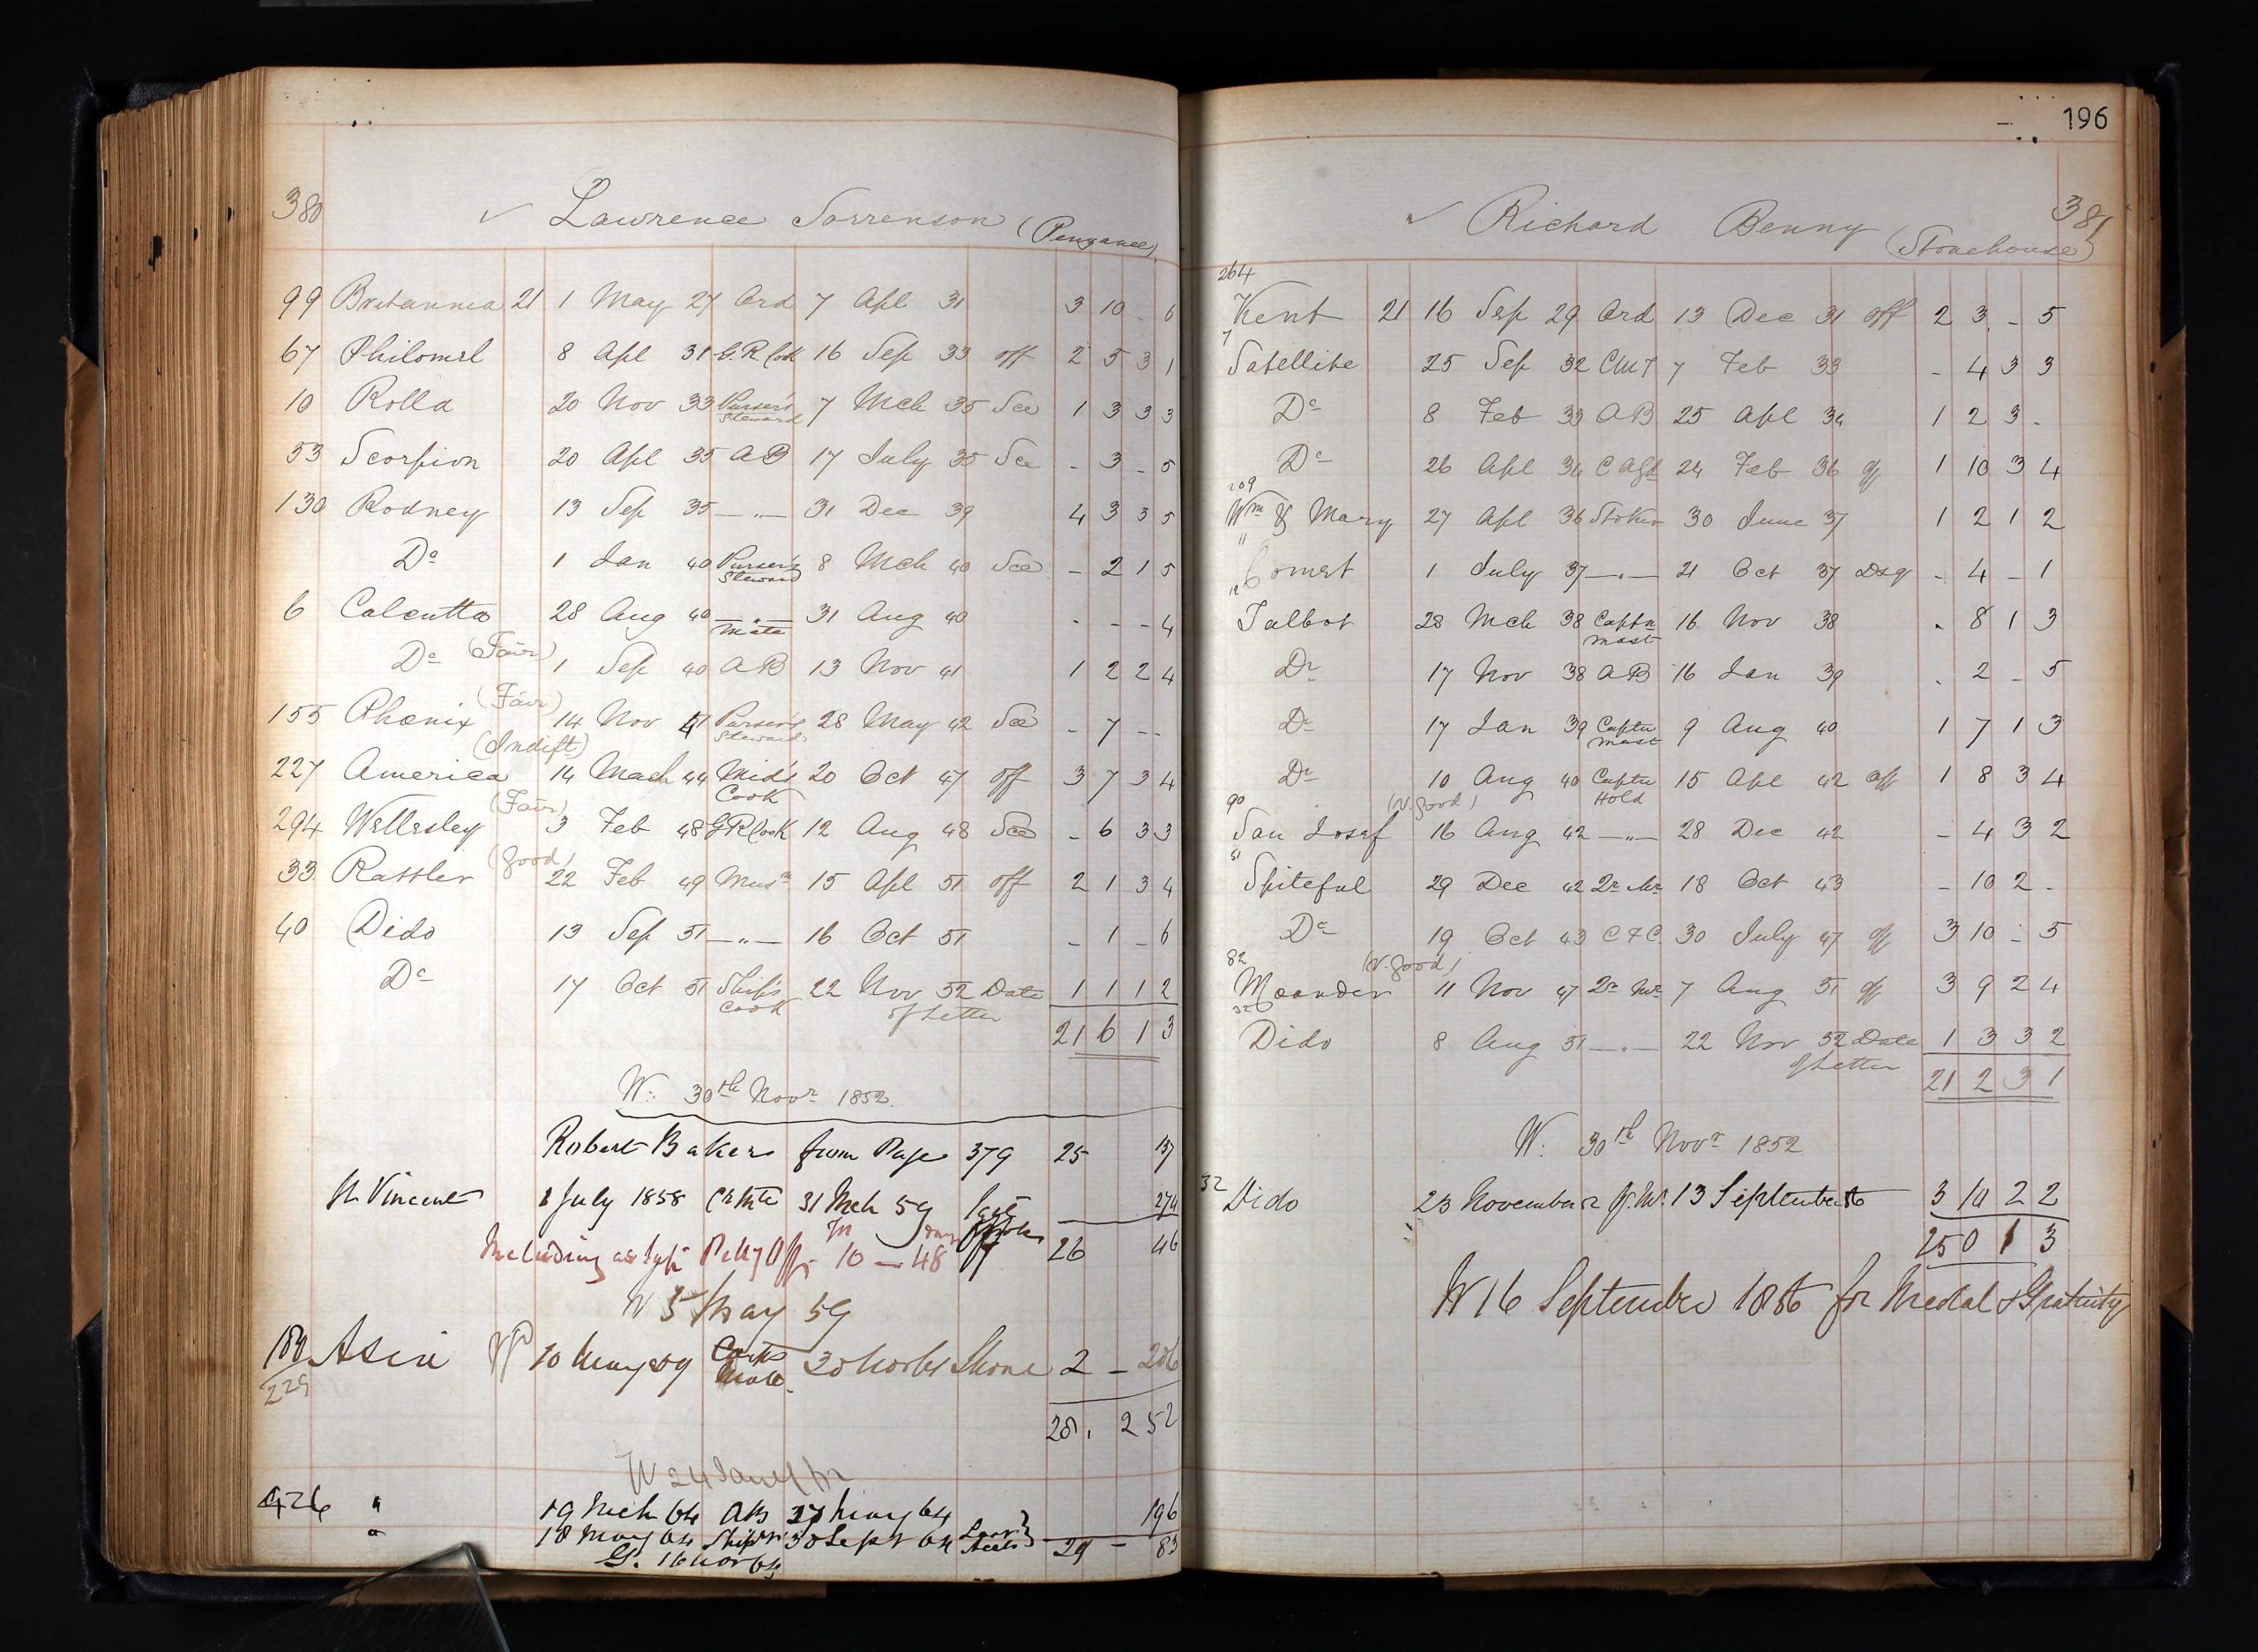 380 ✓ Lawrence Sorrenson (Penzance)
99 Britannia 21 1 May 27 Ord 7 Apl 31 3 10 - 6
67 Philomel 8 Apl 31 G.R Cook 16 Sep 33 off 2 5 3 1
10 Rolla 20 Nov 33 Purser's Steward 7 Mch 35 Sce 1 3 3 3
53 Scorpion 20 Apl 35 AB 17 July 35 Sce - 3 - 5
130 Rodney 13 Sep 35 — " — 31 Dec 39 4 3 3 5
Do 1 Jan 40 Purser's Steward 8 Mch 40 Sce - 2 1 5
6 Calcutta 28 Aug 40 — " — Mate 31 Aug 40 - - - 4
Do (Fair) 1 Sep 40 AB 13 Nov 41 1 2 2 4
155 Phœnix (Fair) 14 Nov 41 Purser's Steward 28 May 42 Sce - 7 - -
227 America (Indift) 14 Mach 44 Mid's Cook 20 Oct 47 off 3 7 3 4
294 Wellesley (Fair) 3 Feb 48 G R Cook 12 Aug 48 Sce - 6 3 3
33 Rattler (Good) 22 Feb 49 Musn 15 Apl 51 off 2 1 3 4
40 Dido 13 Sep 51 — " — 16 Oct 51 - 1 - 6
Do 17 Oct 51 Ship's Cook 22 Nov 52 Date of Letter 1 1 1 2
21 6 1 3
W: 30th Novr 1852.
Robert Baker from Page 379 25 137
St Vincent 1 July 1858 31 Mch 59 274
Including as Petty Offr 10 — 48 26 46
W 5 May 59
189 Asia 10 May 59 2 - 206
229
28 . 252
W 24 Jany
426 " 19 Mch 64 AB 27 May 64 196
" 18 May 64 30 Sept 64 29 - 83
G. 16 Nov 64
196
✓ Richard Benny (Stonehouse) 381
264 Kent 21 16 Sep 29 Ord 13 Dec 31 off 2 3 - 5
7 Satellite 25 Sep 32 CMT 7 Feb 33 - 4 3 3
Do 8 Feb 33 AB 25 Apl 34 1 2 3 -
Do 26 Apl 34 24 Feb 36 off 1 10 3 4
209 Wm & Mary 27 Apl 36 Stoker 30 June 37 1 2 1 2
" Comet 1 July 37 — " — 21 Oct 37 Dsq - 4 - 1
12 Talbot 28 Mch 38 Captn Mast 16 Nov 38 - 8 1 3
Do 17 Nov 38 AB 16 Jan 39 - 2 - 5
Do 17 Jan 39 Captn Mast 9 Aug 40 1 7 1 3
Do 10 Aug 40 Captn Hold 15 Apl 42 off 1 8 3 4
90 San Josef (V. Good) 16 Aug 42 — " — 28 Dec 42 - 4 3 2
51 Spiteful 29 Dec 42 18 Oct 43 - 10 2 -
Do 19 Oct 43 C F C 30 July 47 off 3 10 - 5
82 Mœander (V. Good) 11 Nov 47 7 Aug 51 off 3 9 2 4
32 Dido 8 Aug 51 — " — 22 Nov 52 Date of Letter 1 3 3 2
21 2 3 1
W: 30th Novr 1852
32 Dido 23 November 52 13 September 56 3 10 2 2
25 0 1 3
W 16 September 1856 for Medal & Gratuity